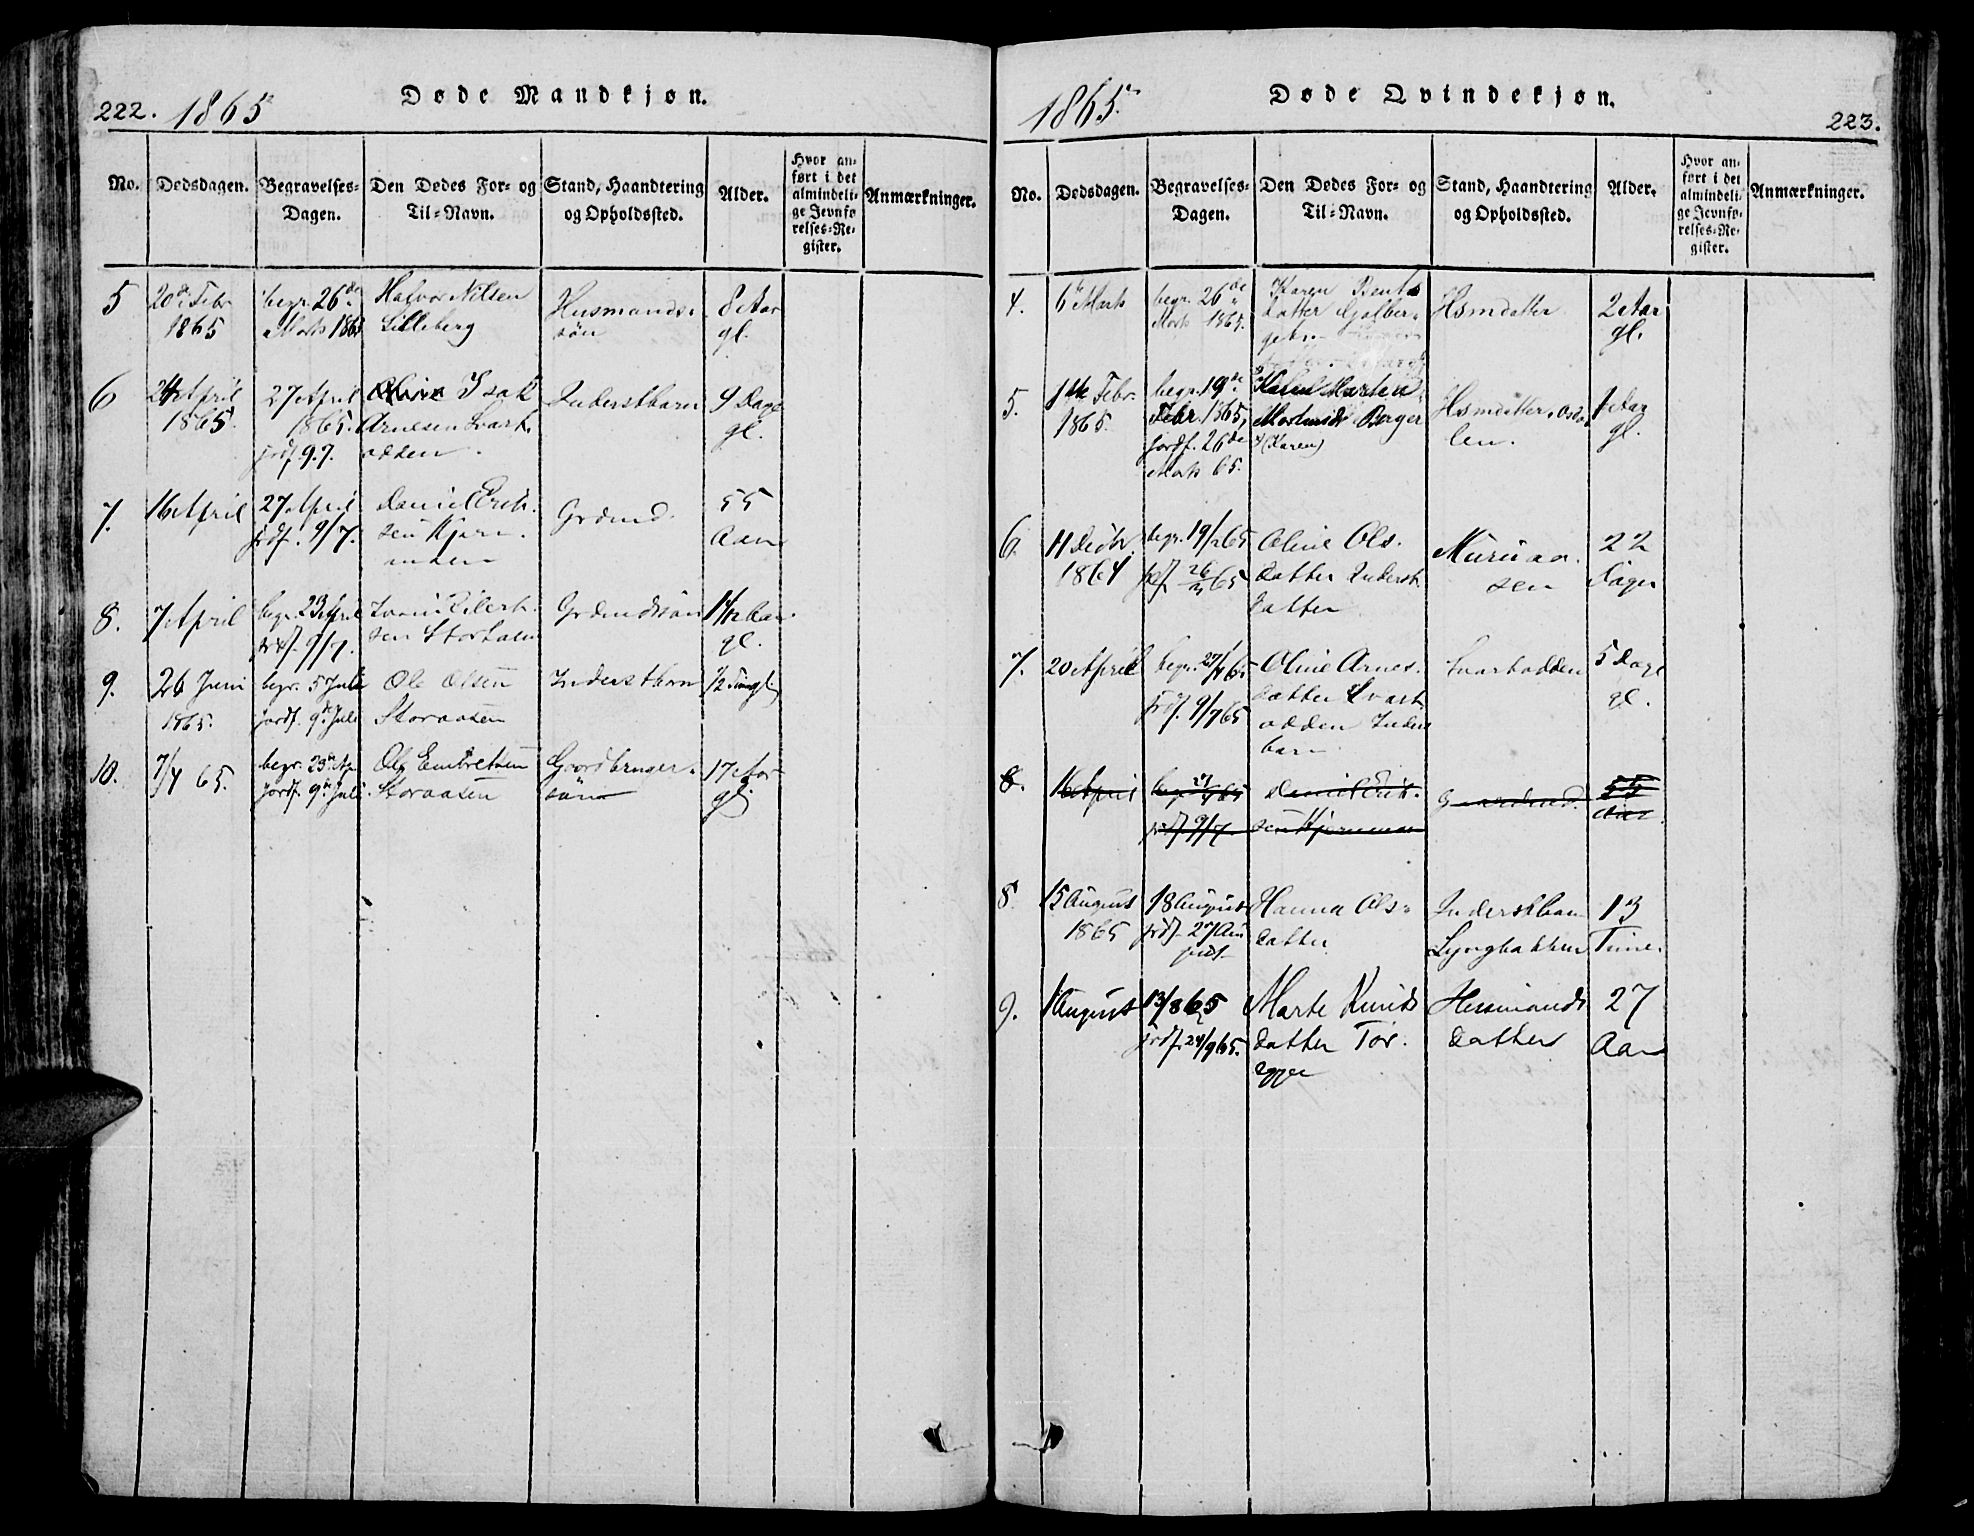 222. 1865
Døde Mandkjøn.
No.
Dødsdagen.
Begravelses-
Dagen.
Den Dødes For- og
Til-Navn.
Stand, Haandtering
og Opholdssted.
Alder.
Hvor an-
ført i det
almindeli-
ge Jevnfø-
relses-Re-
gister.
Anmærkninger.
5
20de Febr
1865
begr. 26de
Marts 1865
Halvor Nilsen
Lilleberg
Husmands-
sön
8 Aar
gl.
6
24 April
1865.
27 April
1865.
jrdf. 9.7.
Isak
Arnesen Svart-
odden.
Inderstbarn
9 Dage
gl.
7.
16 April
27 April
jrdf. 9/7.
Daniel Erik-
sen Kjern-
Grdmd.
55
Aar
8.
7 April
begr. 23 April
jrdf. 9/7.
Eilert-
sen
Grdmdssön
gl.
9.
26 Juni
1865.
begr. 5 Juli
jordf. 9de Juli
Ole Olsen
Storaasen
Inderstbarn
1/2
10.
7/4 65.
begr. 23de Ap.
jordf. 9de Juli.
Ole Embretsen
Storaasen
Gaardbruger-
sön
17 Aar
gl.
1865.
Døde Qvindekjøn.
223.
No.
Dødsdagen.
Begravelses-
Dagen.
Den Dødes For- og
Til-Navn.
Stand, Haandtering
og Opholdssted.
Alder.
Hvor an-
ført i det
almindeli-
ge Jevnfø-
relses-Re-
gister.
Anmærkninger.
4.
6te Marts
begr. 26de
Marts 1865.
Karen Bents
datter
Hsmdatter
2 Aar
gl.
5.
Febr.
1865.
begr. 19de
Febr. 1865,
jordf. 26de
Marts 65.
Martea
Berger
(Karen)
Hsmdatter,
1 Aar
gl.
6.
11 Decbr.
1864
begr. 19/2 65
jrdf. 26/3 65
Oline Ols-
datter Inderst-
datter
Muruaa-
sen
22
Dage
7.
20 April
begr. 27/4 65
jrdf. 9/7 65
Oline Arnes-
datter Svart-
odden Inderst
barn
Svartodden
5 Dage
gl.
8.
16 April
begr. 27/4 65
jrdf. 9/7
Daniel Erik-
sen
Gaardmd.
55
Aar
8.
15 August
1865
18 August
jrdf. 27 Au-
gust
Hanna Ols-
datter
Inderstbarn
Lyngbakken
13
Time.
9.
1 August
13/8 65
jrdf. 24/9 65.
Marte Knuds
datter Tör-
egga
Husmands
datter
27
Aar